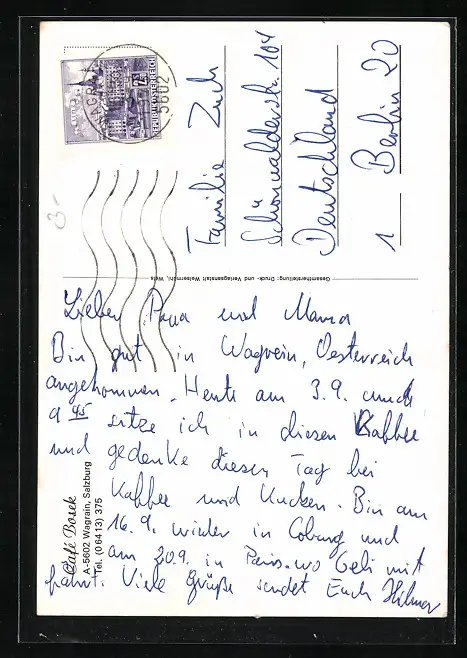 Lieber Papa und Mama
Bin gut in Wagrein, Oesterreich
angekommen. Heute am 3.9. um
9 45 sitze ich in diesen Kaffee
und gedenke diesen Tag bei
Kaffee und Kuchen. Bin am
16.9. wieder in Coburg und
am 20.9. in Paris. wo Gebi mit
fährt. Viele Grüße sendet Euch Hilmar
Familie Zuch
Schönwalderstr. 104
Deutschland
1 Berlin 20
Gesamtherstellung: Druck- und Verlagsanstalt Welsermühl, Wels
Café Bosek
A-5602 Wagrain, Salzburg
Tel. (0 64 13) 375
REPUBLIK ÖSTERREICH
5602 WAGRAIN
3-